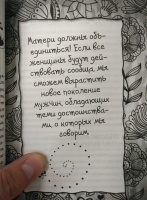 Матери должны объ-
единиться! Если все
женщины будут дей-
ствовать сообща, мы
сможем вырастить
новое поколение
мужчин, обладающих
теми достоинства-
ми, о которых мы
говорим